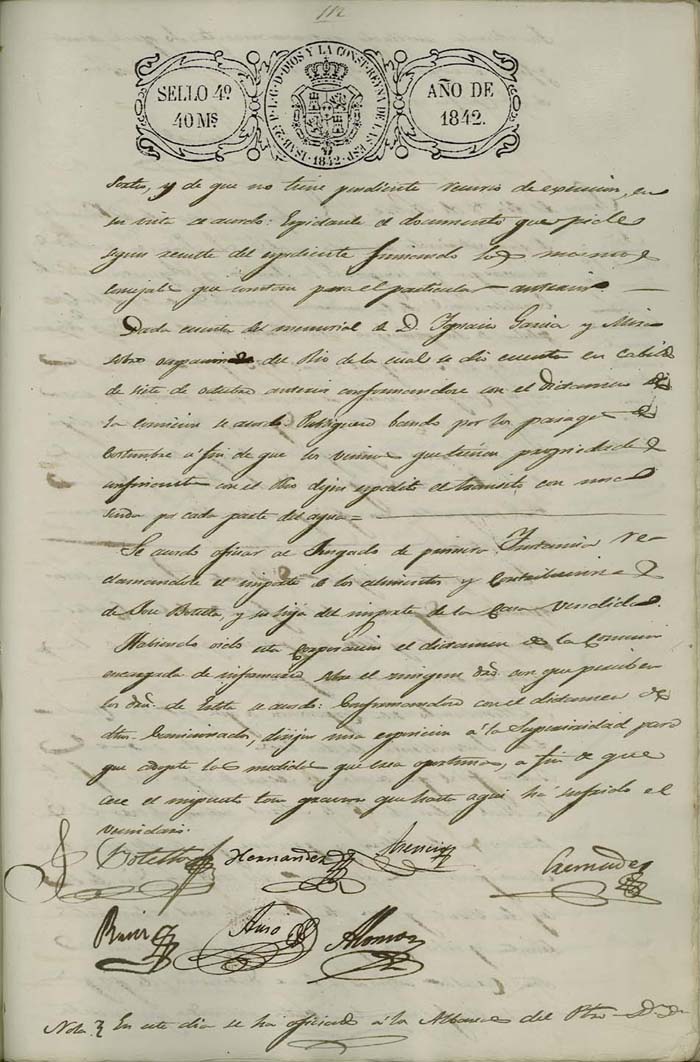 112
SELLO 4º
40 Ms.
ISAB. 2ª P. L. G. D. DIOS Y LA CONST. REYNA DE LAS ESP. 1842
AÑO DE
1842.
Sorteo, y de que no tiene pendiente recurso de esencion, en
su vista se acordó: Espidasele el documento que pide
segun resulte del espediente firmando los mismos
concejales que constan para el particular anterior.
Dada cuenta del memorial de D. Ignacio Garcia y
sobre del Rio de la cual se dio cuenta en Cabildo
de siete de octubre anterior conformandose con el Dictamen de
la comision se acordó bando por los parages de
Costumbre á fin de que los vecinos que tienen propiedades
con el Rio dejen espedito el transito con una
senda por cada parte del agua =
Se acordó oficiar al Juzgado de primera Instancia re-
clamandole el importe de los alimentos y Contribuciones
de José Botella, y su hija del importe de la Casa vendida.
Habiendo oido esta Corporacion el dictamen de la Comision
encargada de informar sobre el con que perciben
los se acordó: Conformandose con el dictamen de
dhos. Comisionados, dirijir una esposicion á la Superioridad para
que adopte las medidas que crea oportunas, a fin de que
cese el impuesto tan gravoso que hasta aqui ha sufrido el
vecindario.
Botella Hernandez Asencio Cremades
Ruiz Auso Alonso
Nota En este dia se ha oficiado á la del Pbro. Dn.